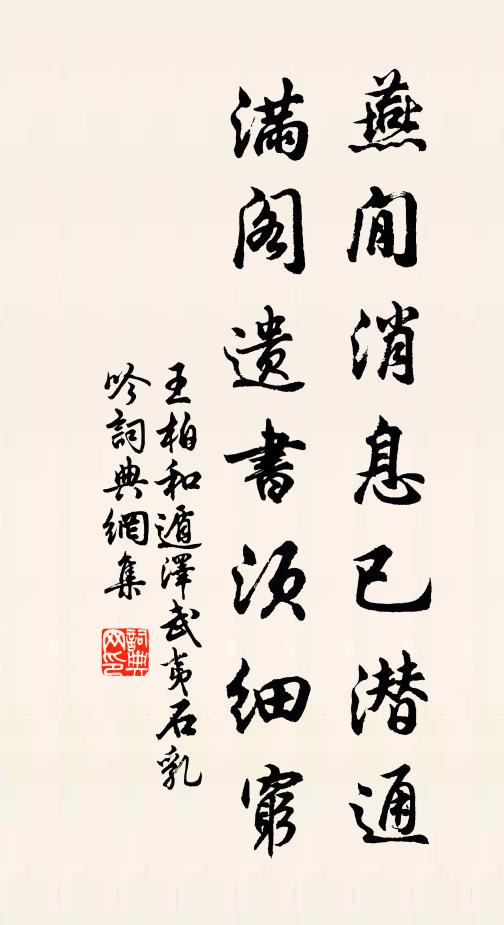 燕閒消息已潜通
满阁遗書须细窮
王柏和遁澤武夷石乳
吟詞典網集
詞典网印